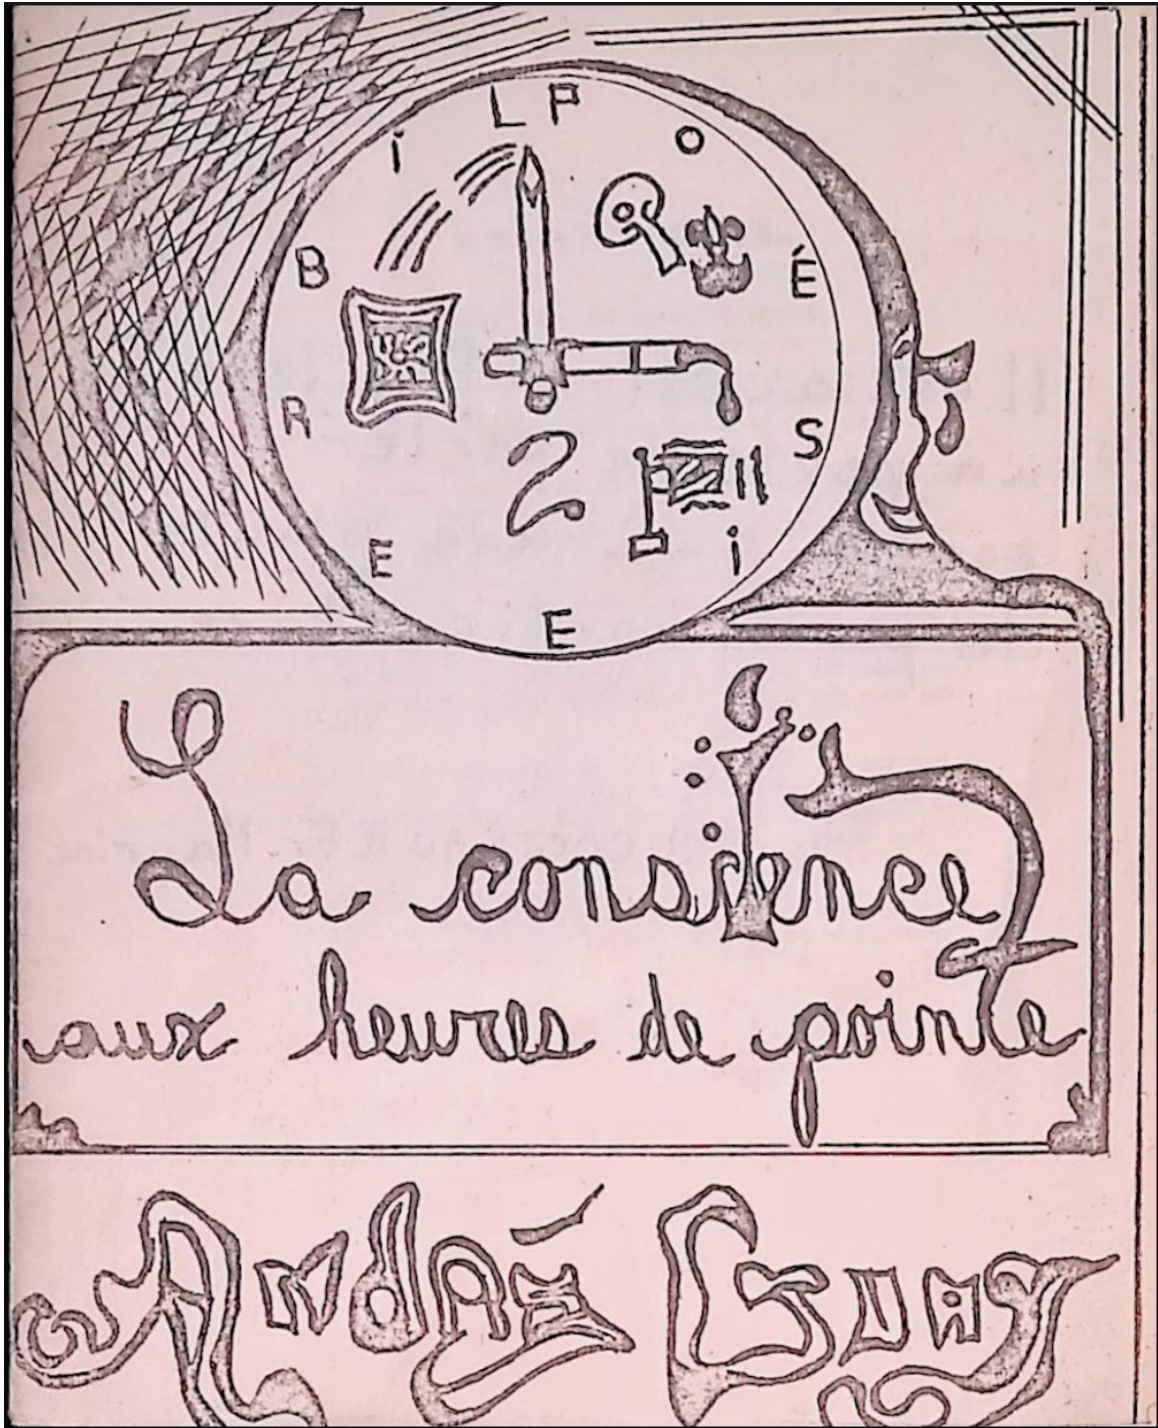 POÉSiE
LiBRE
La conscience
aux heures de pointe
André Guay